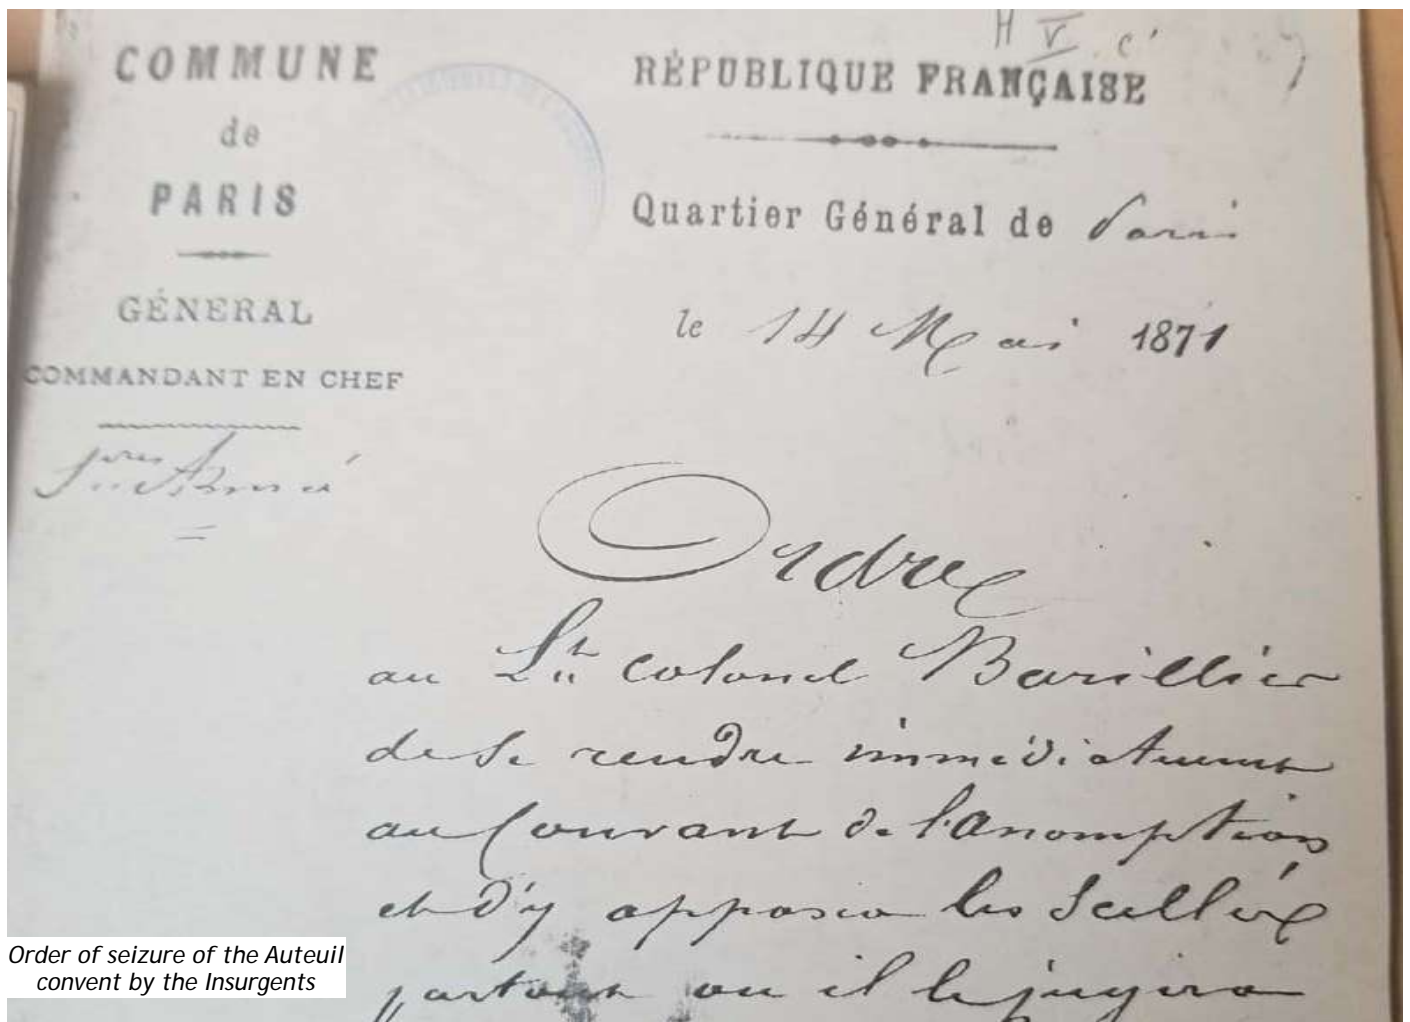 H V c'
COMMUNE
de
PARIS
GÉNERAL
COMMANDANT EN CHEF
RÉPUBLIQUE FRANÇAISE
Quartier Général de Paris
le 14 Mai 1871
Ordre
au Lt. colonel Barillier
de se rendre immédiatement
au Couvent de l'Assomption
et d'y apposer les Scellés
partout ou il le jugera
Order of seizure of the Auteuil
convent by the Insurgents